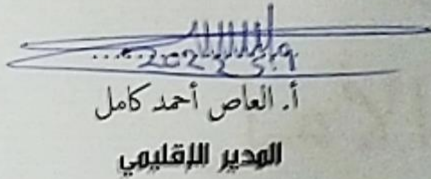 أ. العاص أحمد كامل
المدير الإقليمي